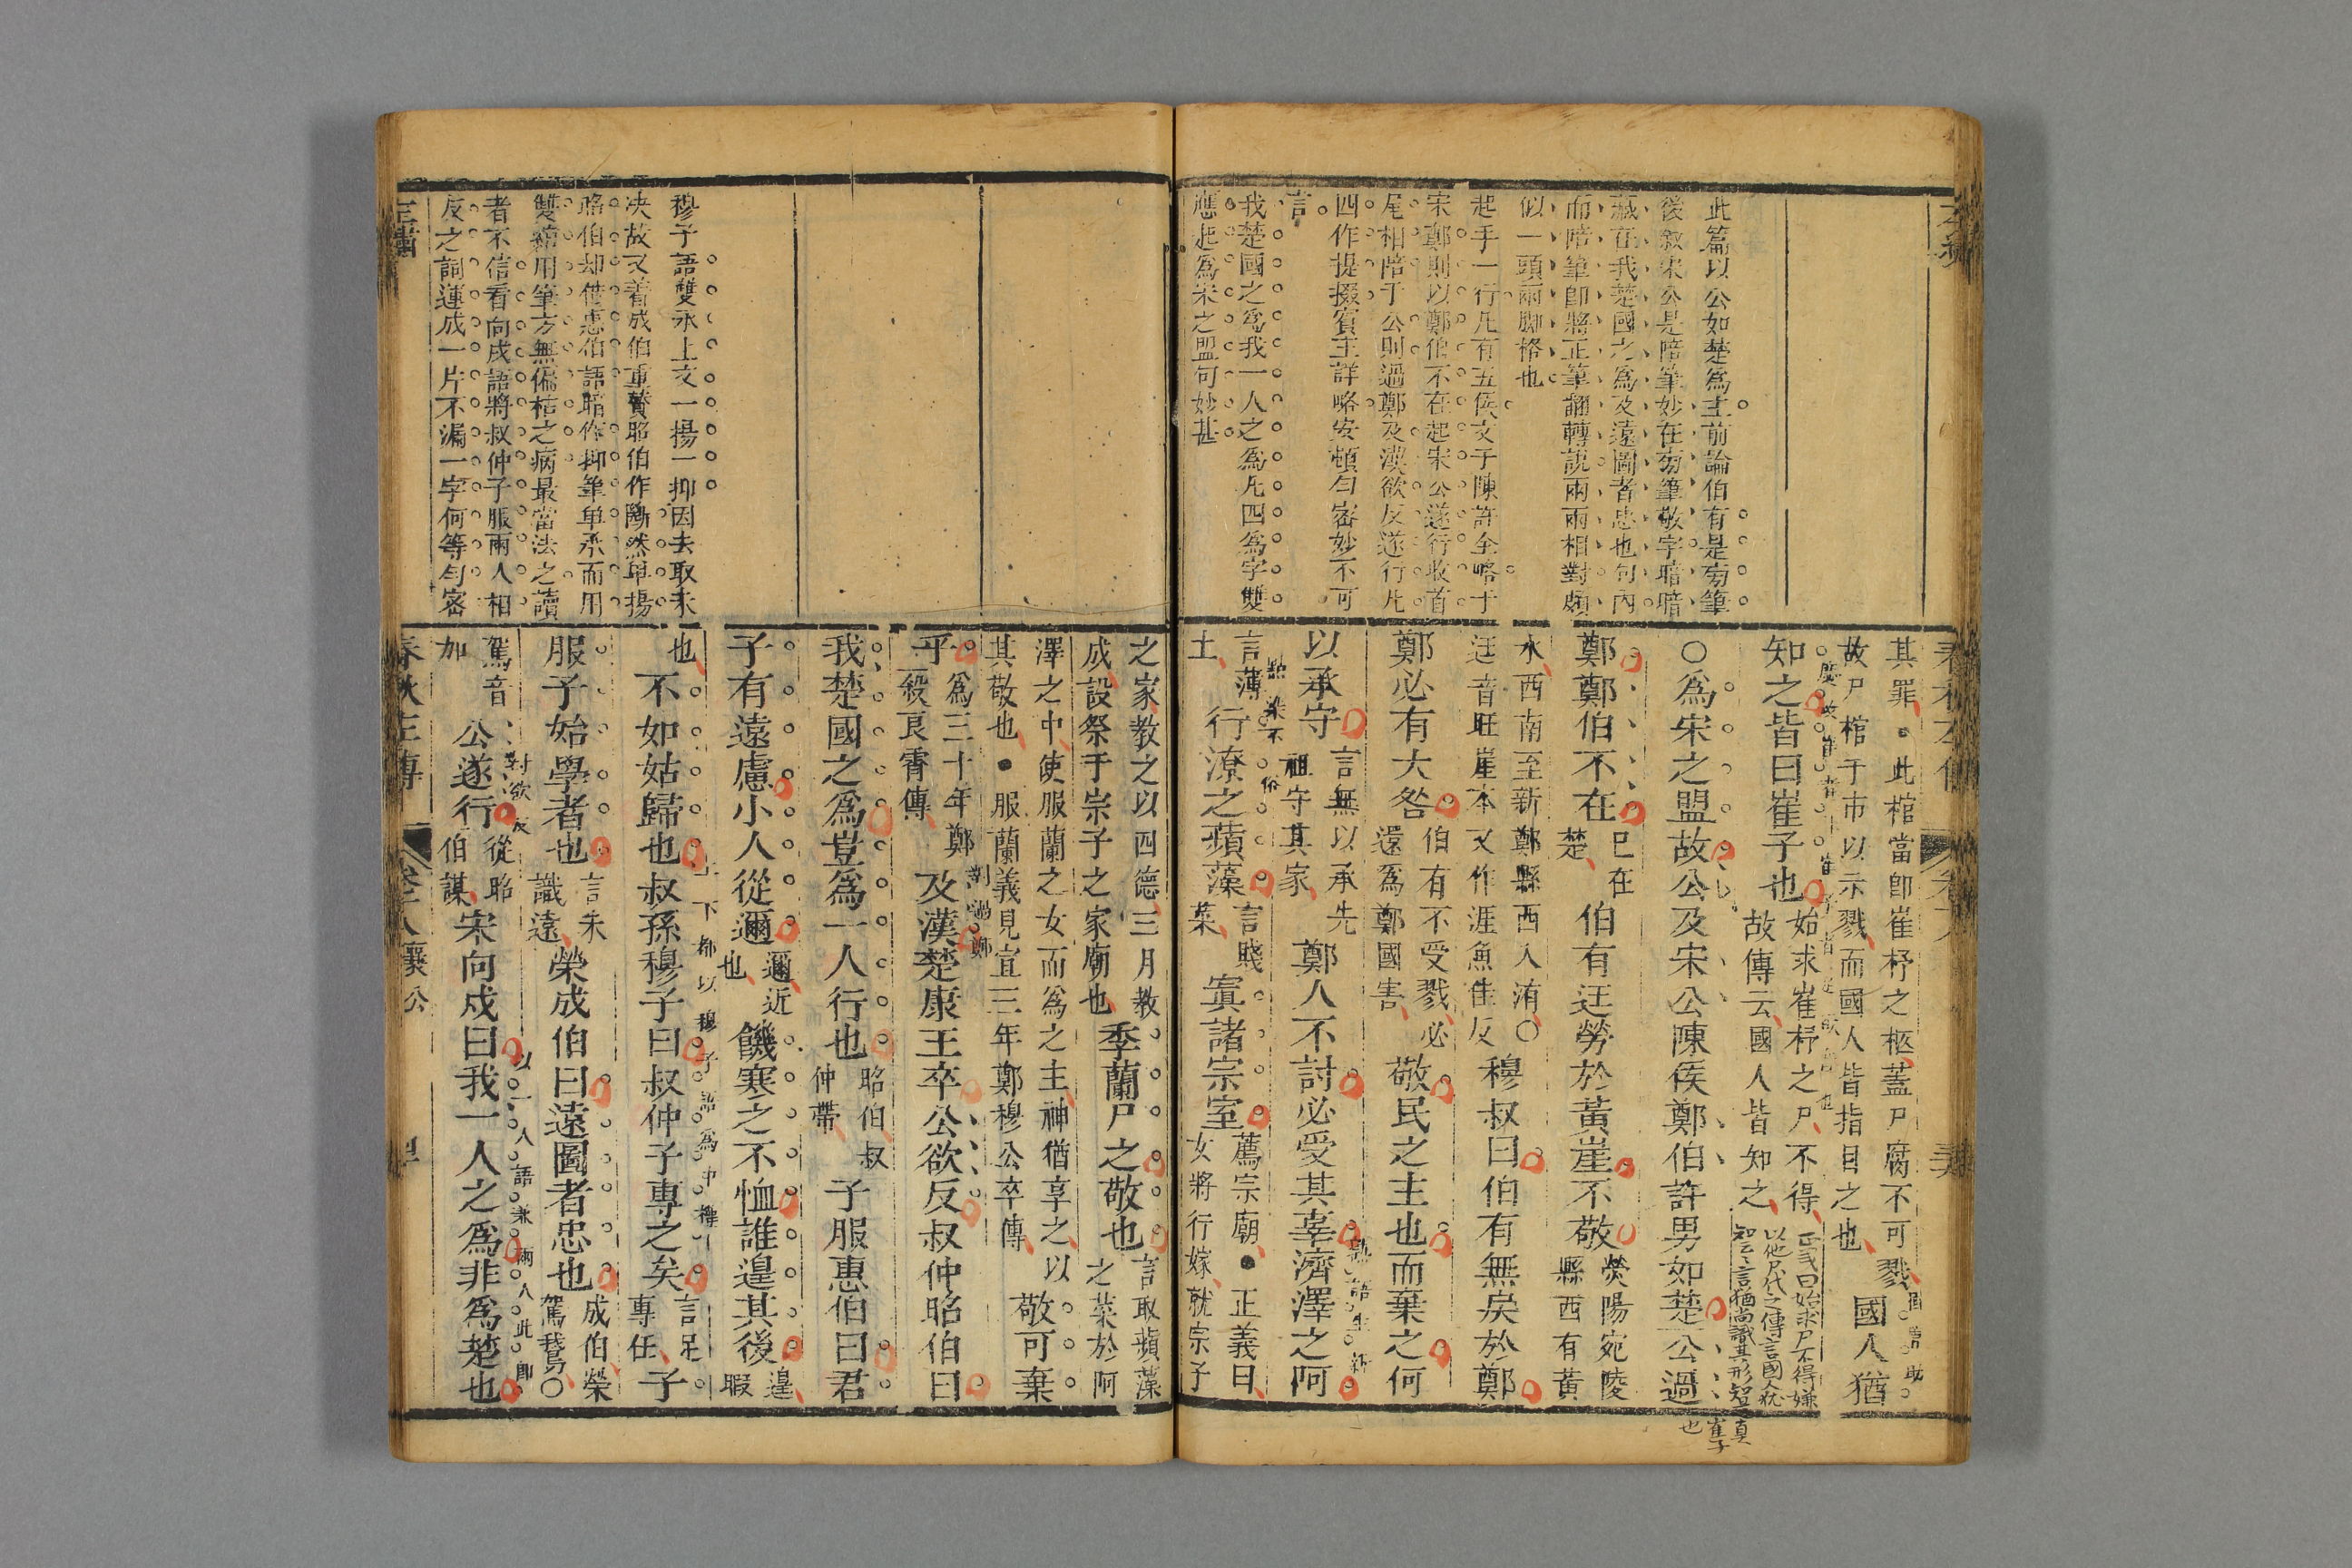 此篇以公如楚爲主前論伯有是旁筆
後敘宋公是陪筆妙在旁筆敬字暗暗
藏在我楚國之爲及遠圖者忠也句內
而陪筆卽將正筆翻轉說兩兩相對頗
似一頭兩脚格也
起手一行凡有五侯文子陳許全略于
宋鄭則以鄭伯不在起宋公遂行收首
尾相陪于公則過鄭及漢欲反遂行凡
四作提掇賓主詳略安頓勻密妙不可
言
我楚國之爲我一人之爲凡四爲字雙
應起爲宋之盟句妙甚
其罪此棺當卽崔杼之柩蓋尸腐不可戮
故尸棺于市以示戮而國人皆指目之也
國人猶
知之皆曰崔子也
始求崔杼之尸不得
故傳云國人皆知之
正義曰始求尸不得嫌
以他尸代之傳言國人猶
知之言猶尚識其形知
真
崔子
也
○爲宋之盟故公及宋公陳侯鄭伯許男如楚公過
鄭鄭伯不在
已在
楚
伯有迋勞於黃崖不敬
滎陽宛陵
縣西有黃
水西南至新鄭縣西入洧○
迋音旺崖本又作涯魚佳反
穆叔曰伯有無戾於鄭
鄭必有大咎
伯有不受戮必
還爲鄭國害
敬民之主也而棄之何
以承守
言無以承先
祖守其家
鄭人不討必受其辜濟澤之阿
言薄
土
行潦之蘋藻
言賤
菜
寘諸宗室
薦宗廟●正義曰
女將行嫁就宗子
點染不俗
之家教之以四德三月教
成設祭于宗子之家廟也
季蘭尸之敬也
言取蘋藻
之菜於阿
澤之中使服蘭之女而爲之主神猶享之以
其敬也●服蘭義見宣三年鄭穆公卒傳
敬可棄
乎
爲三十年鄭
殺良霄傳
及漢楚康王卒公欲反叔仲昭伯曰
對過鄭
我楚國之爲豈爲一人行也
昭伯叔
仲帶
子服惠伯曰君
子有遠慮小人從邇
邇近
也
饑寒之不恤誰遑其後
遑
暇
也
不如姑歸也叔孫穆子曰叔仲子專之矣
言足
專任
子
服子始學者也
言未
識遠
榮成伯曰遠圖者忠也
成伯榮
駕鵞○
駕音
加
公遂行
從昭
伯謀
宋向戌曰我一人之爲非爲楚也
對欲反
以一人語兼兩人此卽
穆子語雙承上文一揚一抑因去取未
決故又着成伯重贊昭伯作斷然單揚
昭伯却借惠伯語暗作抑筆單承而用
雙類用筆方無偏枯之病最當法之讀
者不信看向戌語將叔仲子服兩人相
反之詞運成一片不漏一字何等勻密
春秋左傳
卷八襄公